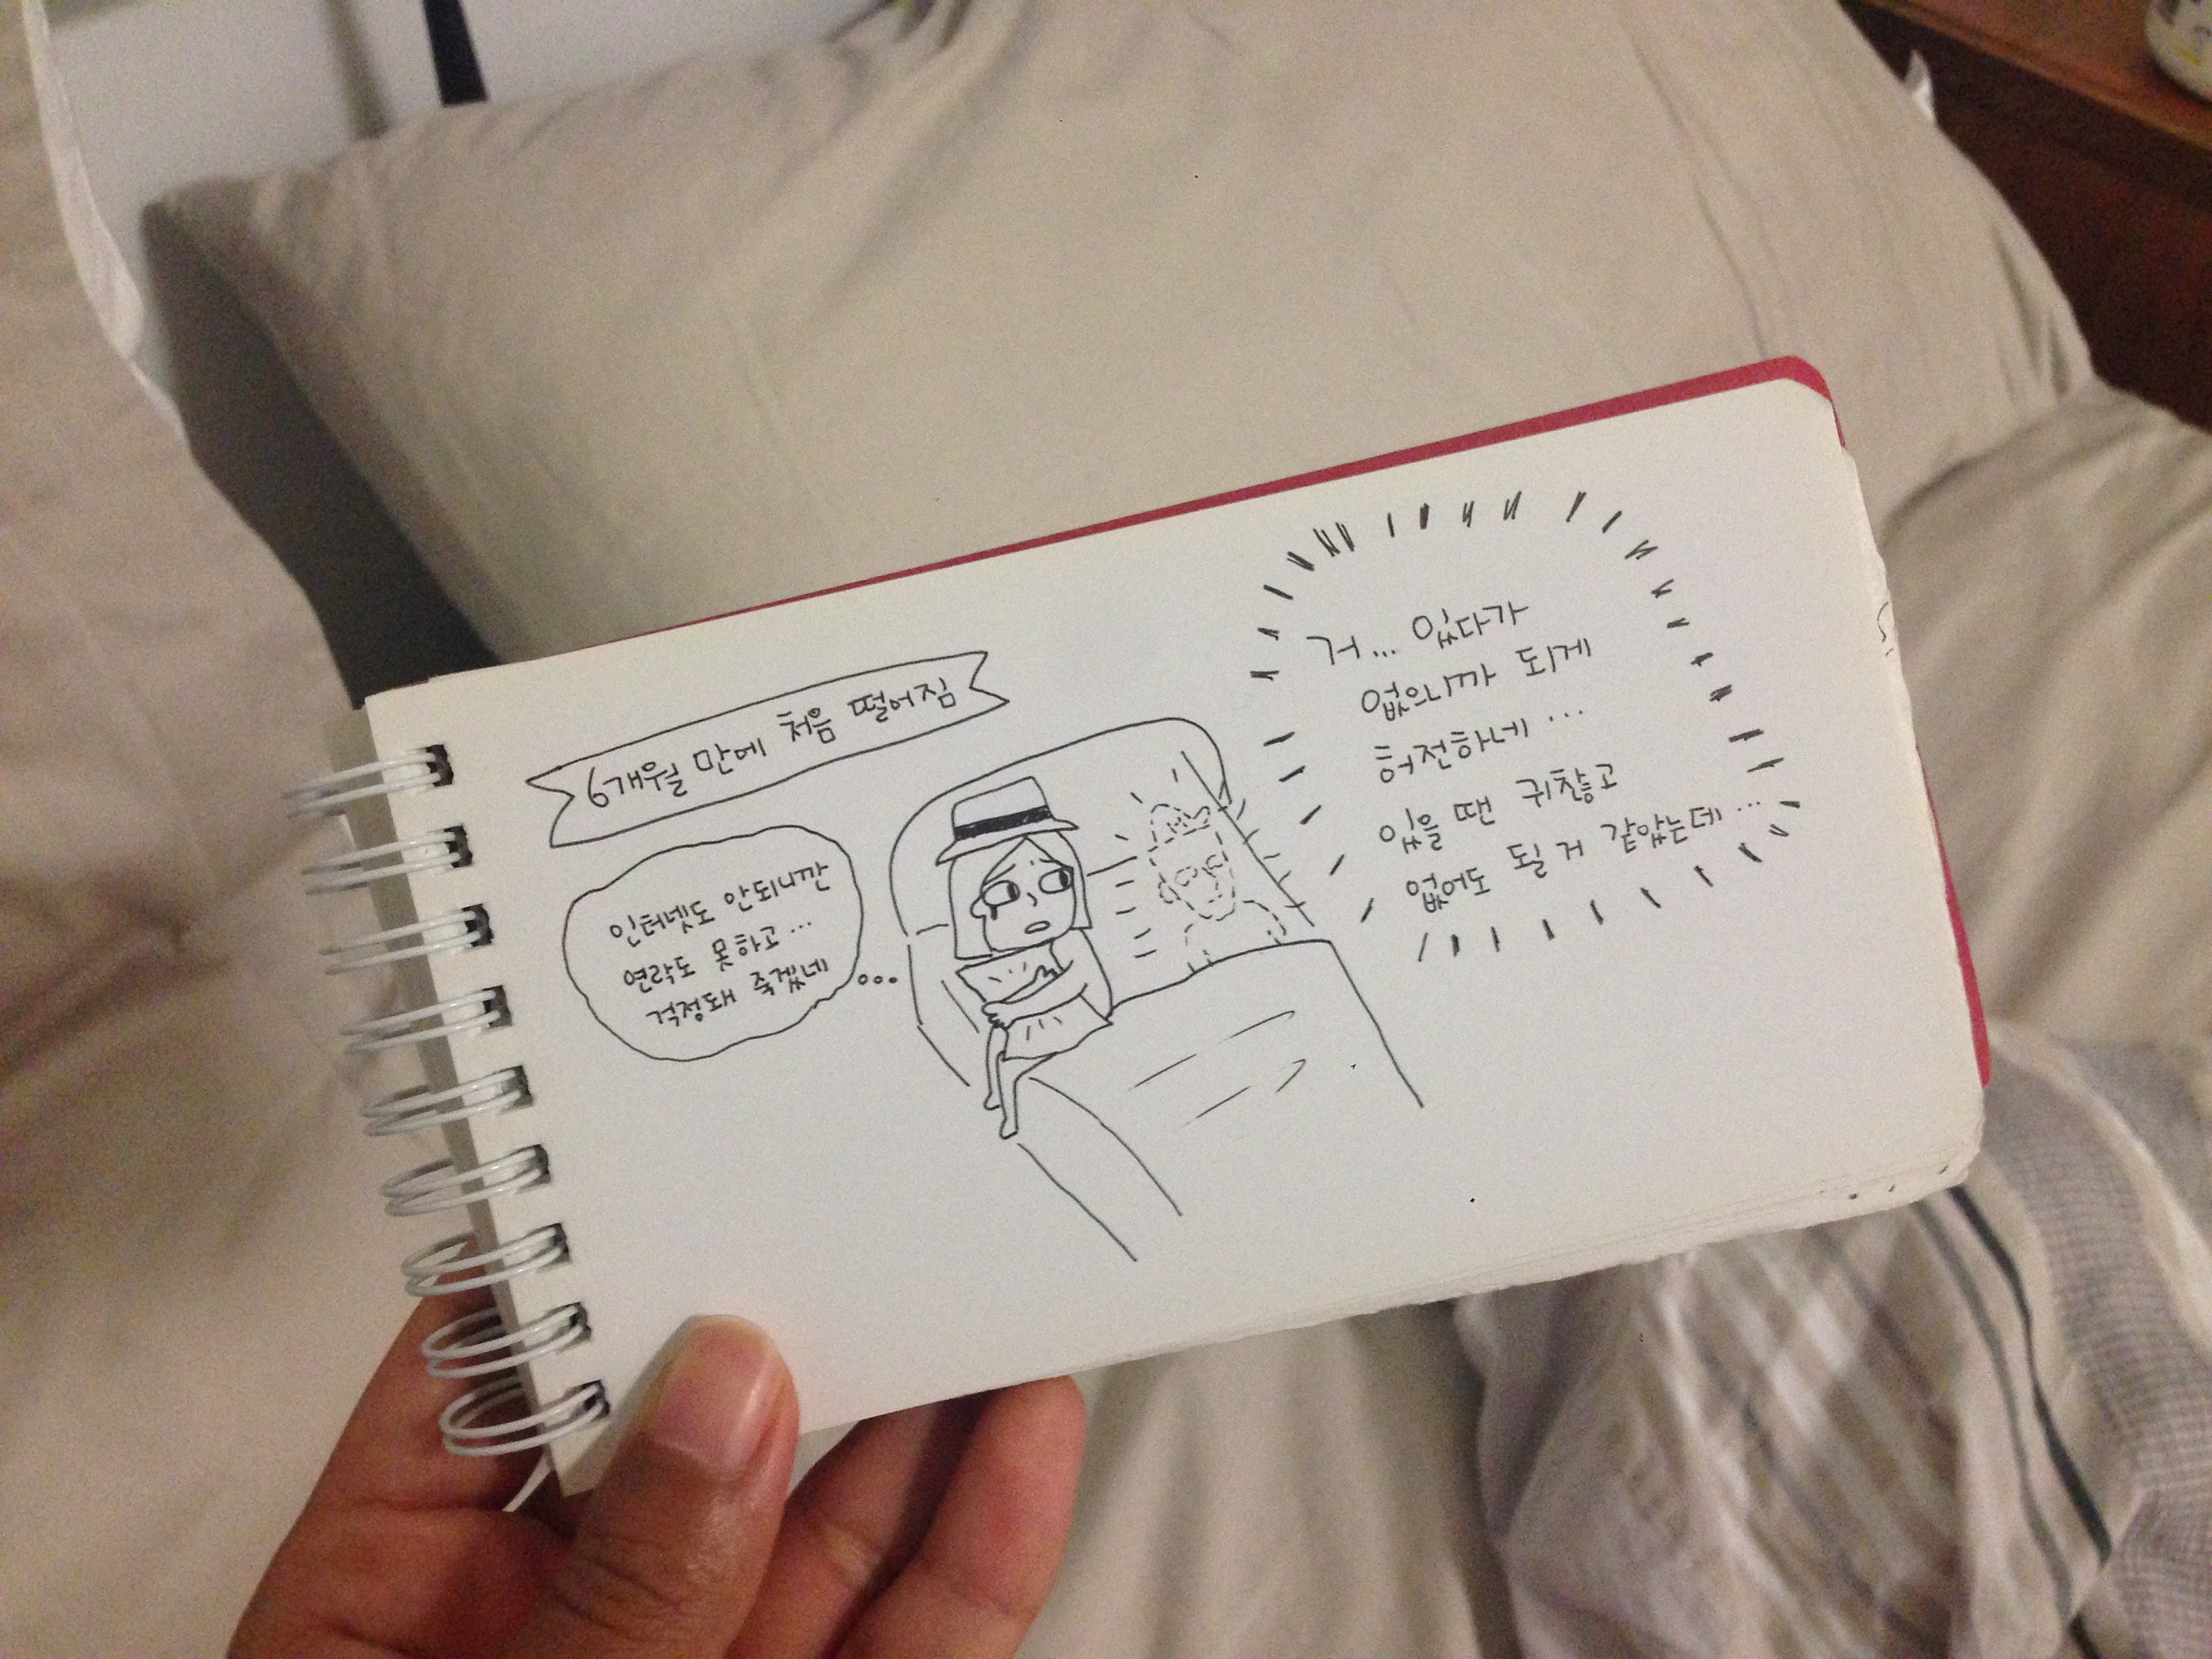 6개월 만에 처음 떨어짐
인터넷도 안되니깐
연락도 못하고...
걱정돼 죽겠네
거... 있다가
없으니까 되게
허전하네...
있을 땐 귀찮고
없어도 될 거 같았는데...